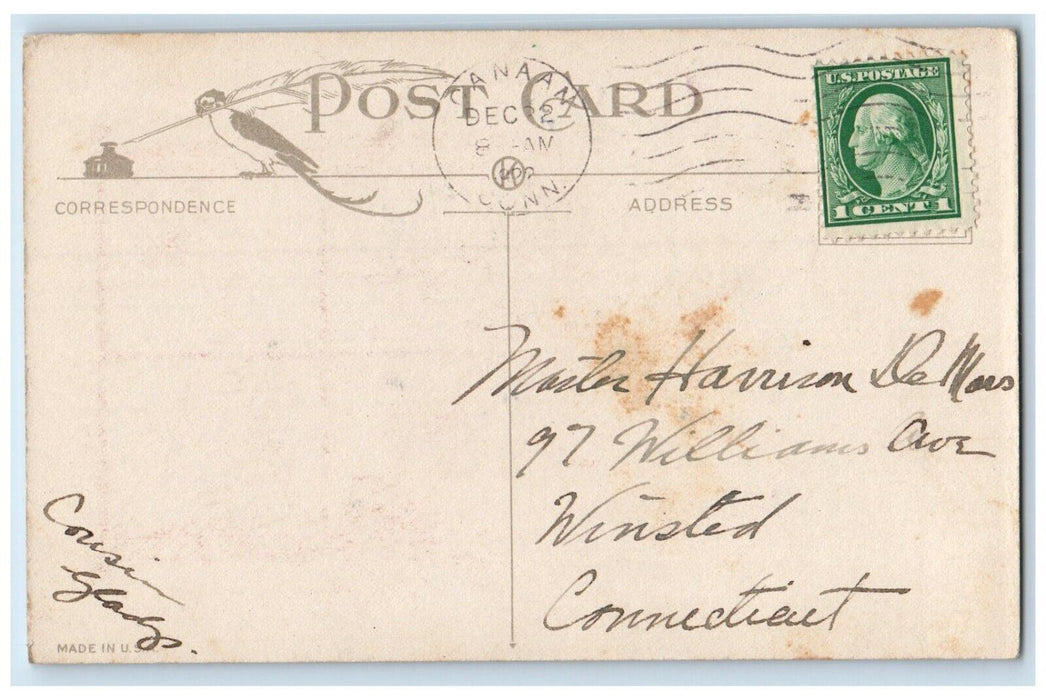 POST CARD
CANAAN
DEC 22
8 - AM
CONN.
U.S. POSTAGE
1 CENT 1
CORRESPONDENCE
ADDRESS
Master Harrison DeMars
97 Williams Ave
Winsted
Connecticut
Cousin
Gladys.
MADE IN U.S.A.